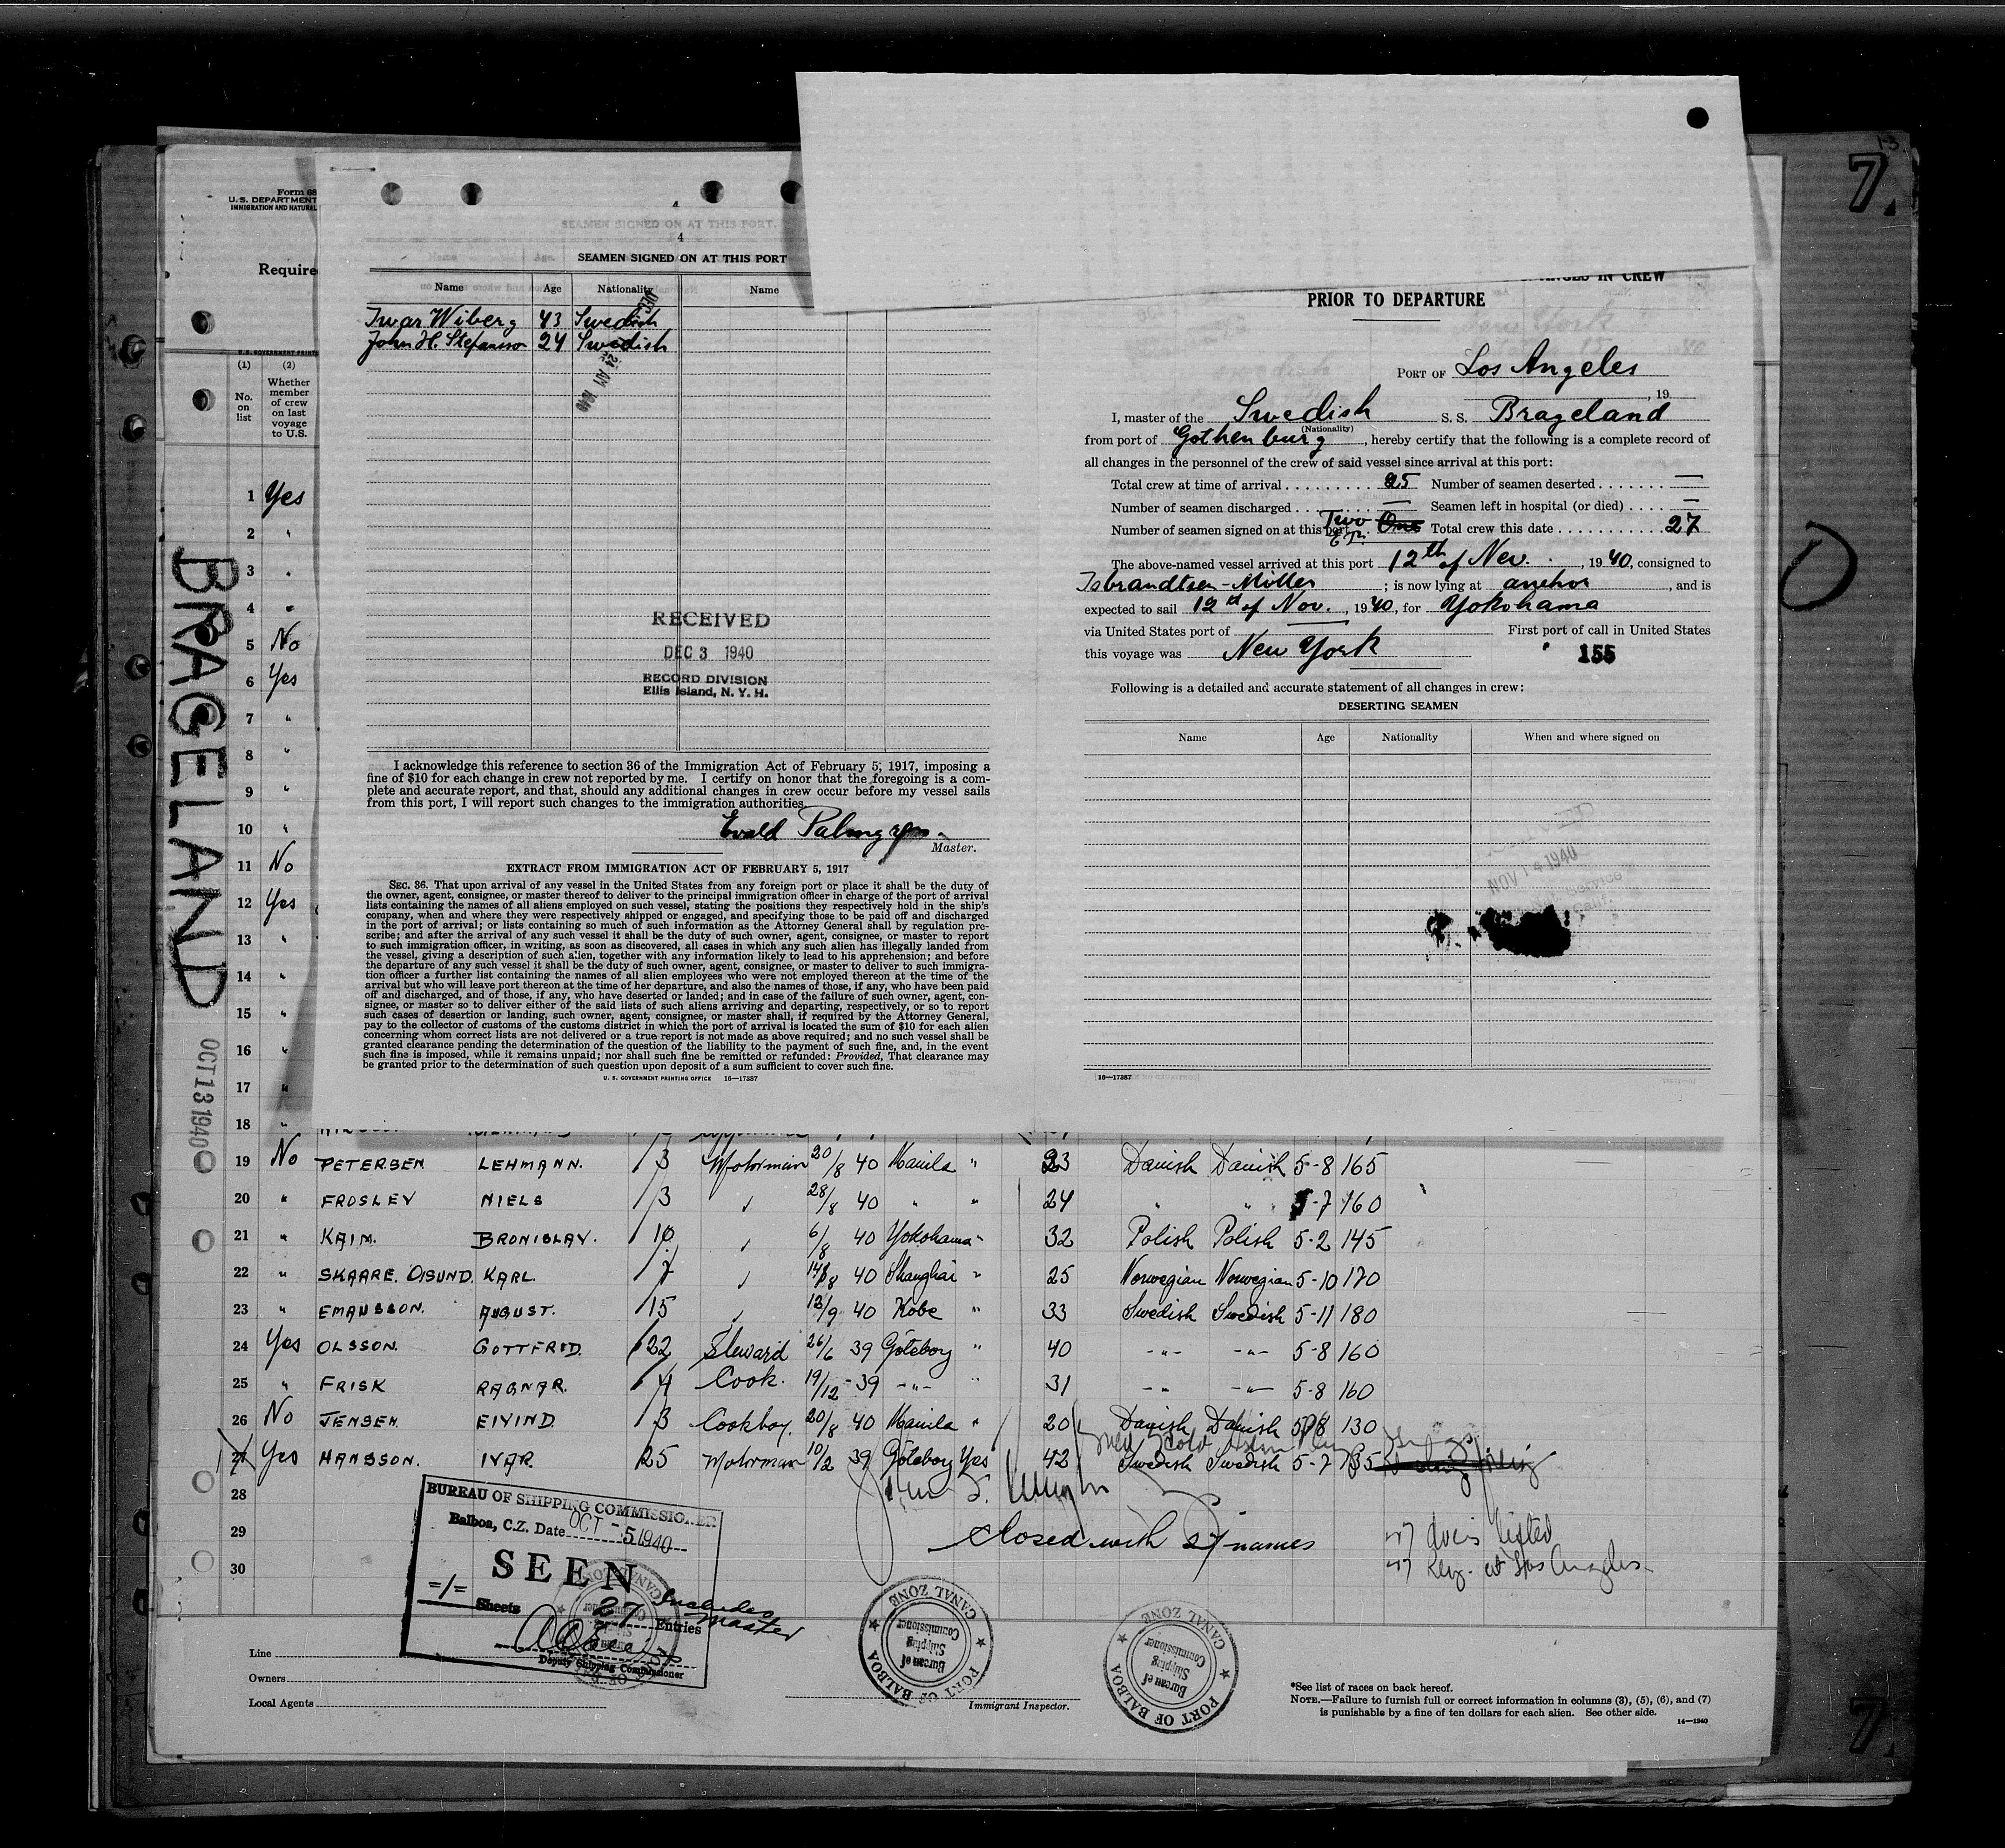 7.
13
Form 68
U. S. DEPARTMENT
IMMIGRATION AND NATURAL
Require
U. S. GOVERNMENT PRINTI
(1) (2)
No. on list
Whether member of crew on last voyage to U.S.
1 Yes
2 "
3 "
4 "
5 No
6 Yes
7 "
8 "
9 "
10 "
11 No
12 Yes
13 "
14 "
15 "
16 "
17 "
18 "
BRAGELAND
OCT 13 1940
SEAMEN SIGNED ON AT THIS PORT.
4
SEAMEN SIGNED ON AT THIS PORT
Name Age Nationality Name
Ivar Wiberg 43 Swedish
John H. Stefanson 24 Swedish
RECEIVED
DEC 3 1940
RECORD DIVISION
Ellis Island, N. Y. H.
I acknowledge this reference to section 36 of the Immigration Act of February 5, 1917, imposing a
fine of $10 for each change in crew not reported by me. I certify on honor that the foregoing is a com-
plete and accurate report, and that, should any additional changes in crew occur before my vessel sails
from this port, I will report such changes to the immigration authorities.
Evald Palmgren
Master.
EXTRACT FROM IMMIGRATION ACT OF FEBRUARY 5, 1917
SEC. 36. That upon arrival of any vessel in the United States from any foreign port or place it shall be the duty of
the owner, agent, consignee, or master thereof to deliver to the principal immigration officer in charge of the port of arrival
lists containing the names of all aliens employed on such vessel, stating the positions they respectively hold in the ship's
company, when and where they were respectively shipped or engaged, and specifying those to be paid off and discharged
in the port of arrival; or lists containing so much of such information as the Attorney General shall by regulation pre-
scribe; and after the arrival of any such vessel it shall be the duty of such owner, agent, consignee, or master to report
to such immigration officer, in writing, as soon as discovered, all cases in which any such alien has illegally landed from
the vessel, giving a description of such alien, together with any information likely to lead to his apprehension; and before
the departure of any such vessel it shall be the duty of such owner, agent, consignee, or master to deliver to such immigra-
tion officer a further list containing the names of all alien employees who were not employed thereon at the time of the
arrival but who will leave port thereon at the time of her departure, and also the names of those, if any, who have been paid
off and discharged, and of those, if any, who have deserted or landed; and in case of the failure of such owner, agent, con-
signee, or master so to deliver either of the said lists of such aliens arriving and departing, respectively, or so to report
such cases of desertion or landing, such owner, agent, consignee, or master shall, if required by the Attorney General,
pay to the collector of customs of the customs district in which the port of arrival is located the sum of $10 for each alien
concerning whom correct lists are not delivered or a true report is not made as above required; and no such vessel shall be
granted clearance pending the determination of the question of the liability to the payment of such fine, and, in the event
such fine is imposed, while it remains unpaid; nor shall such fine be remitted or refunded: Provided, That clearance may
be granted prior to the determination of such question upon deposit of a sum sufficient to cover such fine.
U. S. GOVERNMENT PRINTING OFFICE 16—17387
IN CREW
PRIOR TO DEPARTURE
PORT OF Los Angeles
, 19
I, master of the Swedish S. S. Brageland
(Nationality)
from port of Gothenburg, hereby certify that the following is a complete record of
all changes in the personnel of the crew of said vessel since arrival at this port:
Total crew at time of arrival 25 Number of seamen deserted —
Number of seamen discharged — Seamen left in hospital (or died) —
Number of seamen signed on at this port Two One Total crew this date 27
The above-named vessel arrived at this port 12th of Nov., 1940, consigned to
Isbrandtsen-Möller; is now lying at anchor, and is
expected to sail 12th of Nov., 1940, for Yokohama
via United States port of — First port of call in United States
this voyage was New York 155
Following is a detailed and accurate statement of all changes in crew:
DESERTING SEAMEN
Name Age Nationality When and where signed on
NOV 14 1940
Service
Calif.
16—17387
19 No PETERSEN LEHMANN. 3 Motorman 20/8 40 Manila " 23 Danish Danish 5-8 165
20 " FROSLEV NIELS 3 " 28/8 40 " " 24 " " 5-7 160
21 " KAIM. BRONISLAV. 10 " 6/8 40 Yokohama " 32 Polish Polish 5-2 145
22 " SKAARE. OISUND. KARL. 7 " 14/8 40 Shanghai " 25 Norwegian Norwegian 5-10 170
23 " EMANSSON. AUGUST. 15 " 12/9 40 Kobe " 33 Swedish Swedish 5-11 180
24 Yes OLSSON. GOTTFRID. 22 Steward 26/6 39 Göteborg " 40 -"- -"- 5-8 160
25 " FRISK RAGNAR. 4 Cook. 19/12-39 -"- " 31 -"- -"- 5-8 160
26 No JENSEN EIVIND. 3 Cookboy. 20/8 40 Manila " 20 Danish Danish 5-8 130
27 Yes HANSSON. IVAR 25 Motorman 10/2 39 Göteborg Yes 42 Swedish Swedish 5-7 135
28
29
30
closed with 27 names
27 listed
27 at Los Angeles
BUREAU OF SHIPPING COMMISSIONER
Balboa, C.Z. Date OCT -5 1940
SEEN
=1= Sheets 27 Entries
Includes Master
Deputy Shipping Commissioner
PORT OF BALBOA CANAL ZONE
Bureau of Shipping Commissioner
PORT OF BALBOA CANAL ZONE
Bureau of Shipping Commissioner
Line
Owners
Local Agents
Immigrant Inspector.
*See list of races on back hereof.
NOTE.—Failure to furnish full or correct information in columns (3), (5), (6), and (7)
is punishable by a fine of ten dollars for each alien. See other side.
14—1240
7.